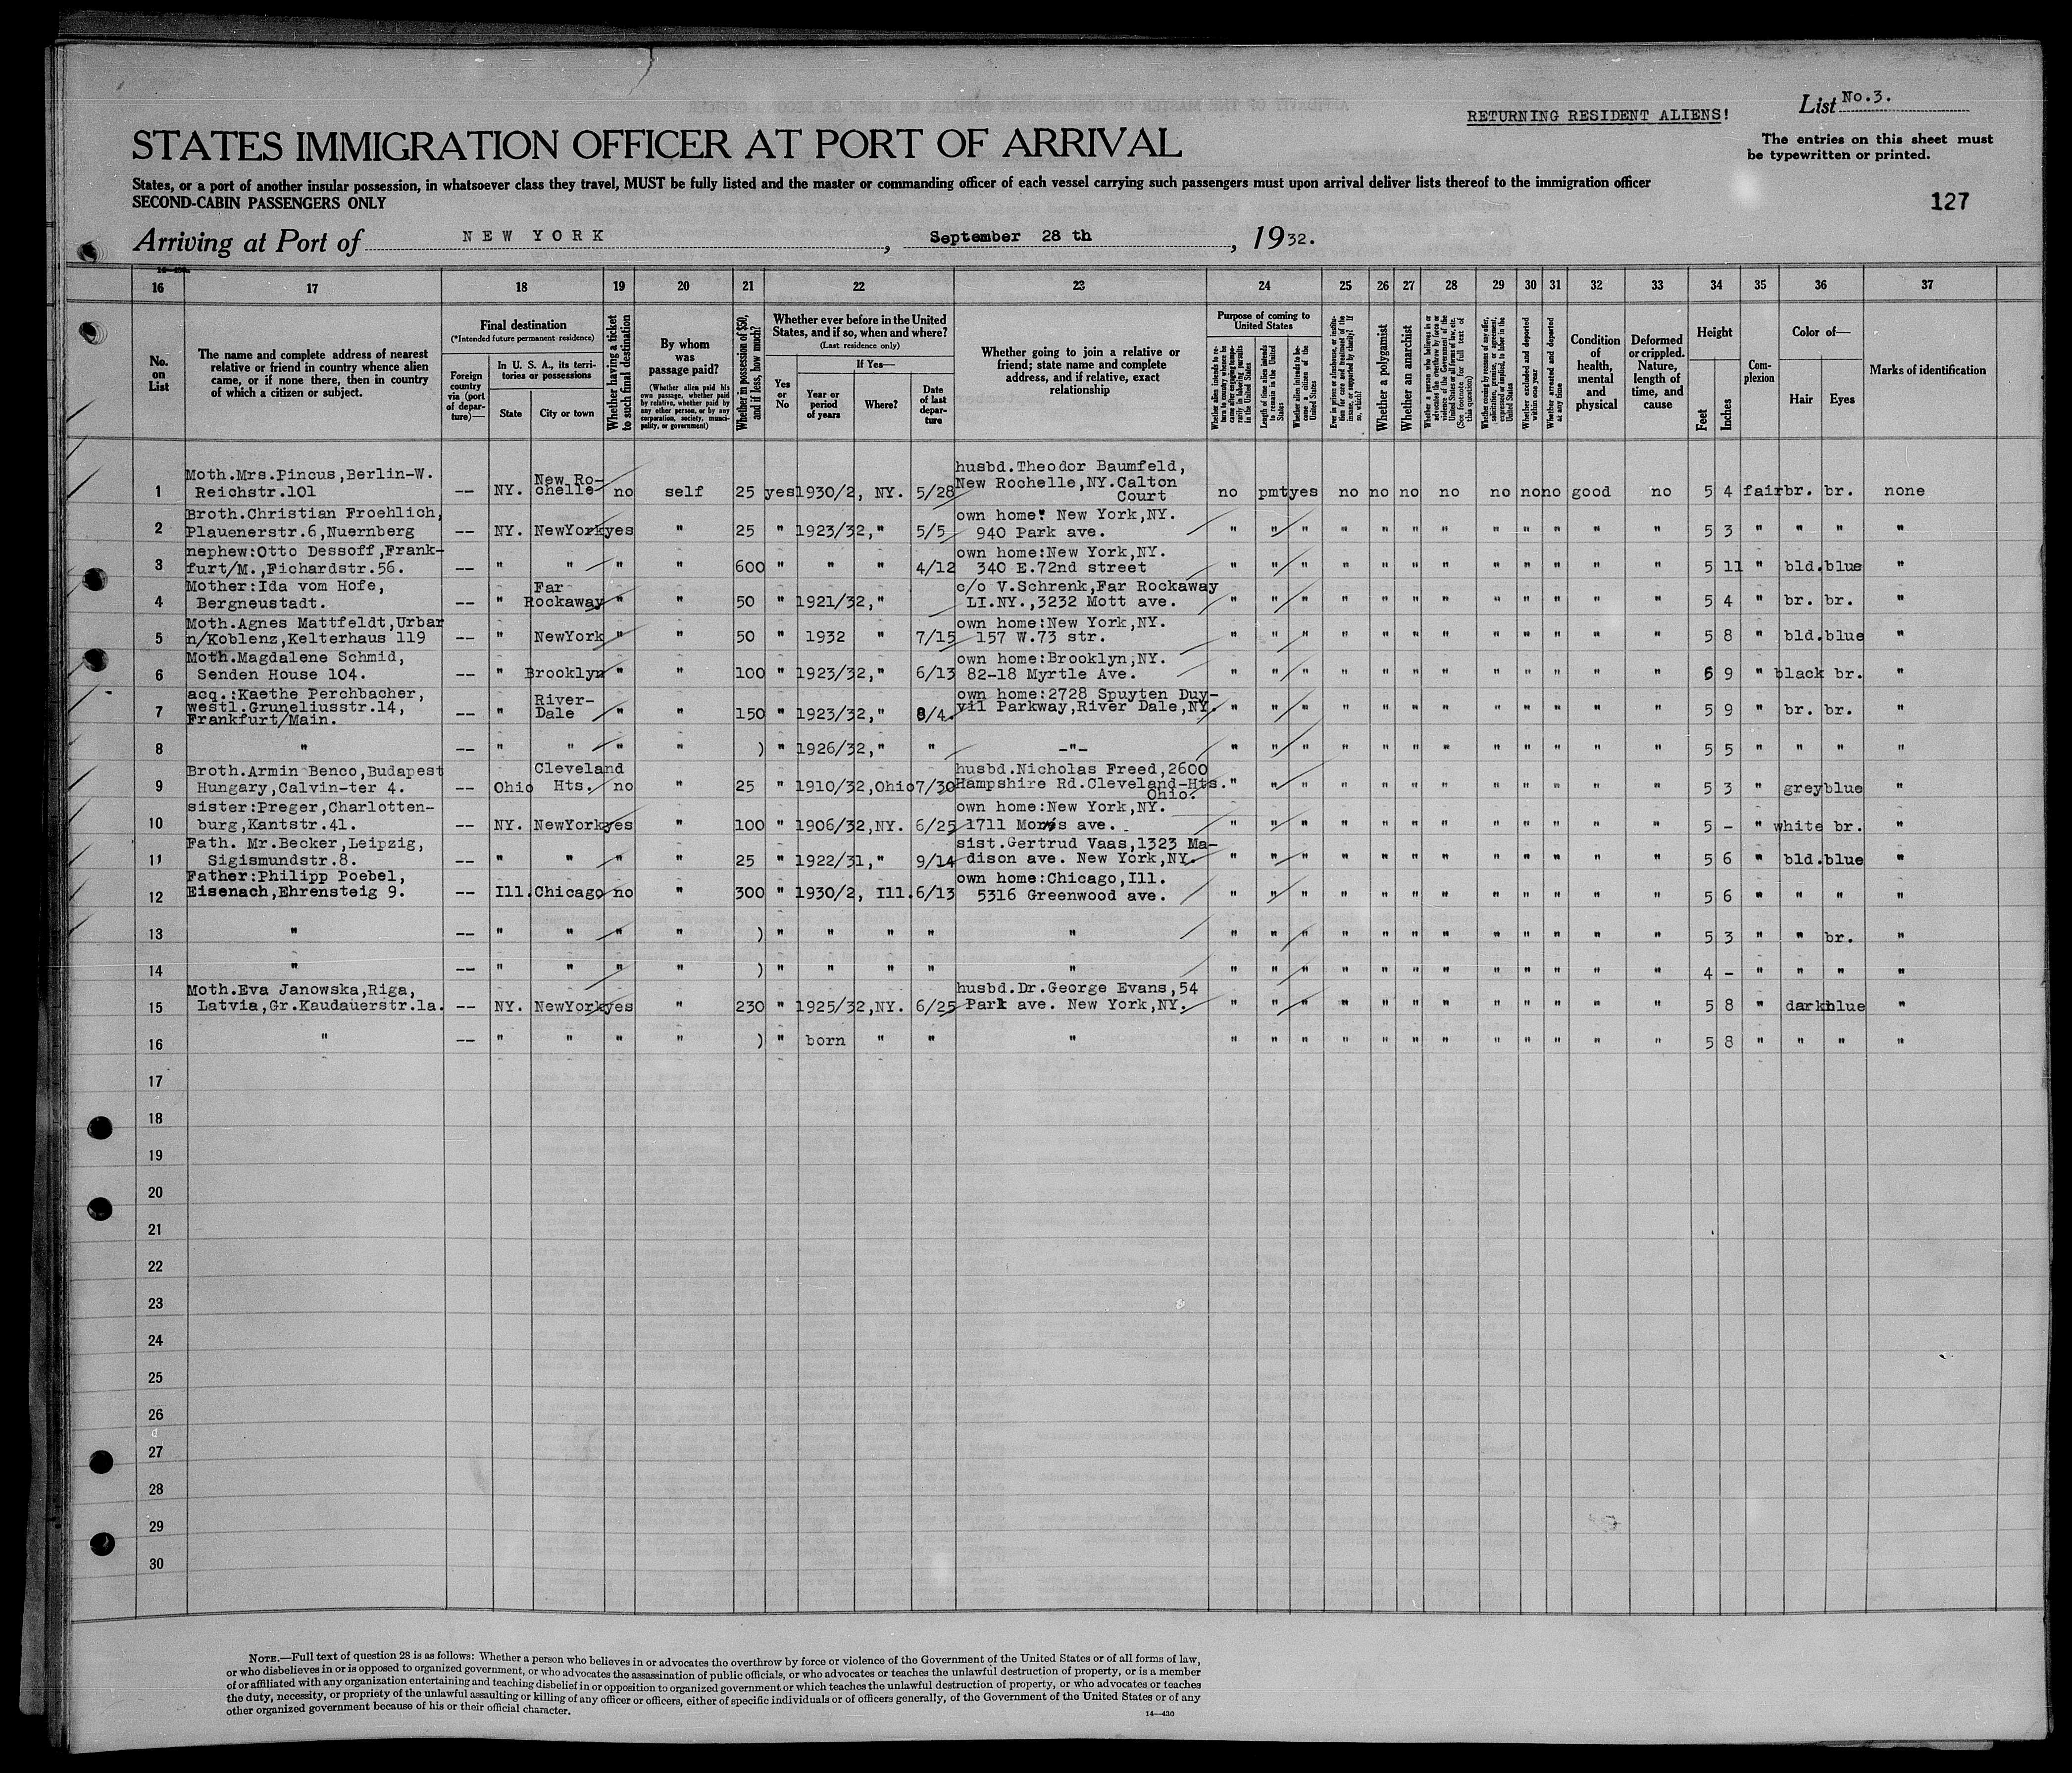 RETURNING RESIDENT ALIENS!
List No.3.
STATES IMMIGRATION OFFICER AT PORT OF ARRIVAL
The entries on this sheet must
be typewritten or printed.
States, or a port of another insular possession, in whatsoever class they travel, MUST be fully listed and the master or commanding officer of each vessel carrying such passengers must upon arrival deliver lists thereof to the immigration officer
SECOND-CABIN PASSENGERS ONLY
127
Arriving at Port of NEW YORK, September 28 th, 1932.
16 17 18 19 20 21 22 23 24 25 26 27 28 29 30 31 32 33 34 35 36 37
No.
on
List
The name and complete address of nearest
relative or friend in country whence alien
came, or if none there, then in country
of which a citizen or subject.
Final destination
(*Intended future permanent residence)
Foreign
country
via (port
of depar-
ture)—
In U. S. A., its terri-
tories or possessions
State
City or town
Whether having a ticket
to such final destination
By whom
was
passage paid?
(Whether alien paid his
own passage, whether paid
by relative, whether paid by
any other person, or by any
corporation, society, munici-
pality, or government)
Whether in possession of $50,
and if less, how much?
Whether ever before in the United
States, and if so, when and where?
(Last residence only)
Yes
or
No
If Yes—
Year or
period
of years
Where?
Date
of last
depar-
ture
Whether going to join a relative or
friend; state name and complete
address, and if relative, exact
relationship
Purpose of coming to
United States
Length of time alien intends
to remain in the United
States
Whether alien intends to be-
come a citizen of the
United States
Whether a polygamist
Whether an anarchist
Whether excluded and deported
within one year
Whether arrested and deported
at any time
Condition
of
health,
mental
and
physical
Deformed
or crippled.
Nature,
length of
time, and
cause
Height
Feet
Inches
Com-
plexion
Color of—
Hair
Eyes
Marks of identification
Moth.Mrs.Pincus,Berlin-W. New Ro- husbd.Theodor Baumfeld,
1 Reichstr.101 -- NY. chelle no self 25 yes 1930/2, NY. 5/28 New Rochelle,NY.Calton
Court no pmt yes no no no no no no no good no 5 4 fair br. br. none
Broth.Christian Froehlich, own home: New York,NY.
2 Plauenerstr.6,Nuernberg -- NY. NewYork yes " 25 " 1923/32," 5/5 940 Park ave. " " " " " " " " " " " " 5 3 " " " "
nephew:Otto Dessoff,Frank- own home:New York,NY.
3 furt/M.,Fichardstr.56. -- " " " " 600 " " " 4/12 340 E.72nd street " " " " " " " " " " " " 5 11 " bld. blue "
Mother:Ida vom Hofe, Far c/o V.Schrenk,Far Rockaway
4 Bergneustadt. -- " Rockaway " " 50 " 1921/32," LI.NY.,3232 Mott ave. " " " " " " " " " " " " 5 4 " br. br. "
Moth.Agnes Mattfeldt,Urbar own home:New York,NY.
5 n/Koblenz,Kelterhaus 119 -- " NewYork " " 50 " 1932 " 7/15 157 W.73 str. " " " " " " " " " " " " 5 8 " bld. blue "
Moth.Magdalene Schmid, own home:Brooklyn,NY.
6 Senden House 104. -- " Brooklyn " " 100 " 1923/32," 6/13 82-18 Myrtle Ave. " " " " " " " " " " " " 6 9 " black br. "
acq.:Kaethe Perchbacher, River- own home:2728 Spuyten Duy-
7 westl.Gruneliusstr.14, -- " Dale " " 150 " 1923/32," 8/4. vil Parkway,River Dale,NY. " " " " " " " " " " " " 5 9 " br. br. "
Frankfurt/Main.
8 " -- " " " " ) " 1926/32," " -"- " " " " " " " " " " " " 5 5 " " " "
Broth.Armin Benco,Budapest Cleveland husbd.Nicholas Freed,2600
9 Hungary,Calvin-ter 4. -- Ohio Hts. no " 25 " 1910/32,Ohio 7/30 Hampshire Rd.Cleveland-Hts.
Ohio. " " " " " " " " " " " " 5 3 " grey blue "
sister:Preger,Charlotten- own home:New York,NY.
10 burg,Kantstr.41. -- NY. NewYork yes " 100 " 1906/32,NY. 6/25 1711 Morris ave. " " " " " " " " " " " " 5 - " white br. "
Fath. Mr.Becker,Leipzig, sist.Gertrud Vaas,1323 Ma-
11 Sigismundstr.8. -- " " " " 25 " 1922/31," 9/14 dison ave. New York,NY. " " " " " " " " " " " " 5 6 " bld. blue "
Father:Philipp Poebel, own home:Chicago,Ill.
12 Eisenach,Ehrensteig 9. -- Ill. Chicago no " 300 " 1930/2, Ill. 6/13 5316 Greenwood ave. " " " " " " " " " " " " 5 6 " " " "
13 " -- " " " " ) " " " " " " " " " " " " " " " " " 5 3 " " br. "
14 " -- " " " " ) " " " " " " " " " " " " " " " " " 4 - " " " "
Moth.Eva Janowska,Riga, husbd.Dr.George Evans,54
15 Latvia,Gr.Kaudauerstr.1a. -- NY. NewYork yes " 230 " 1925/32,NY. 6/25 Park ave. New York,NY. " " " " " " " " " " " " 5 8 " dark blue "
16 " -- " " " " ) " born " " " " " " " " " " " " " " " 5 8 " " " "
17
18
19
20
21
22
23
24
25
26
27
28
29
30
NOTE.—Full text of question 28 is as follows: Whether a person who believes in or advocates the overthrow by force or violence of the Government of the United States or of all forms of law,
or who disbelieves in or is opposed to organized government, or who advocates the assassination of public officials, or who advocates or teaches the unlawful destruction of property, or is a member
of or affiliated with any organization entertaining and teaching disbelief in or opposition to organized government or which teaches the unlawful destruction of property, or who advocates or teaches
the duty, necessity, or propriety of the unlawful assaulting or killing of any officer or officers, either of specific individuals or of officers generally, of the Government of the United States or of any
other organized government because of his or their official character.
14—430